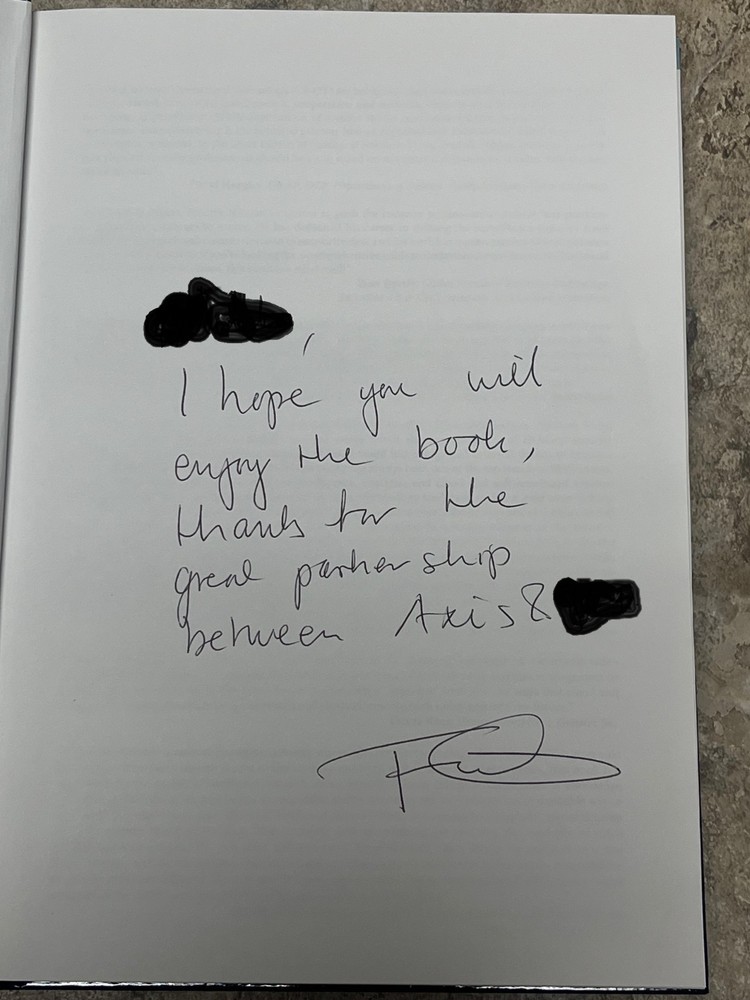 ,
I hope you will
enjoy the book,
thanks for the
great partnership
between Axis &